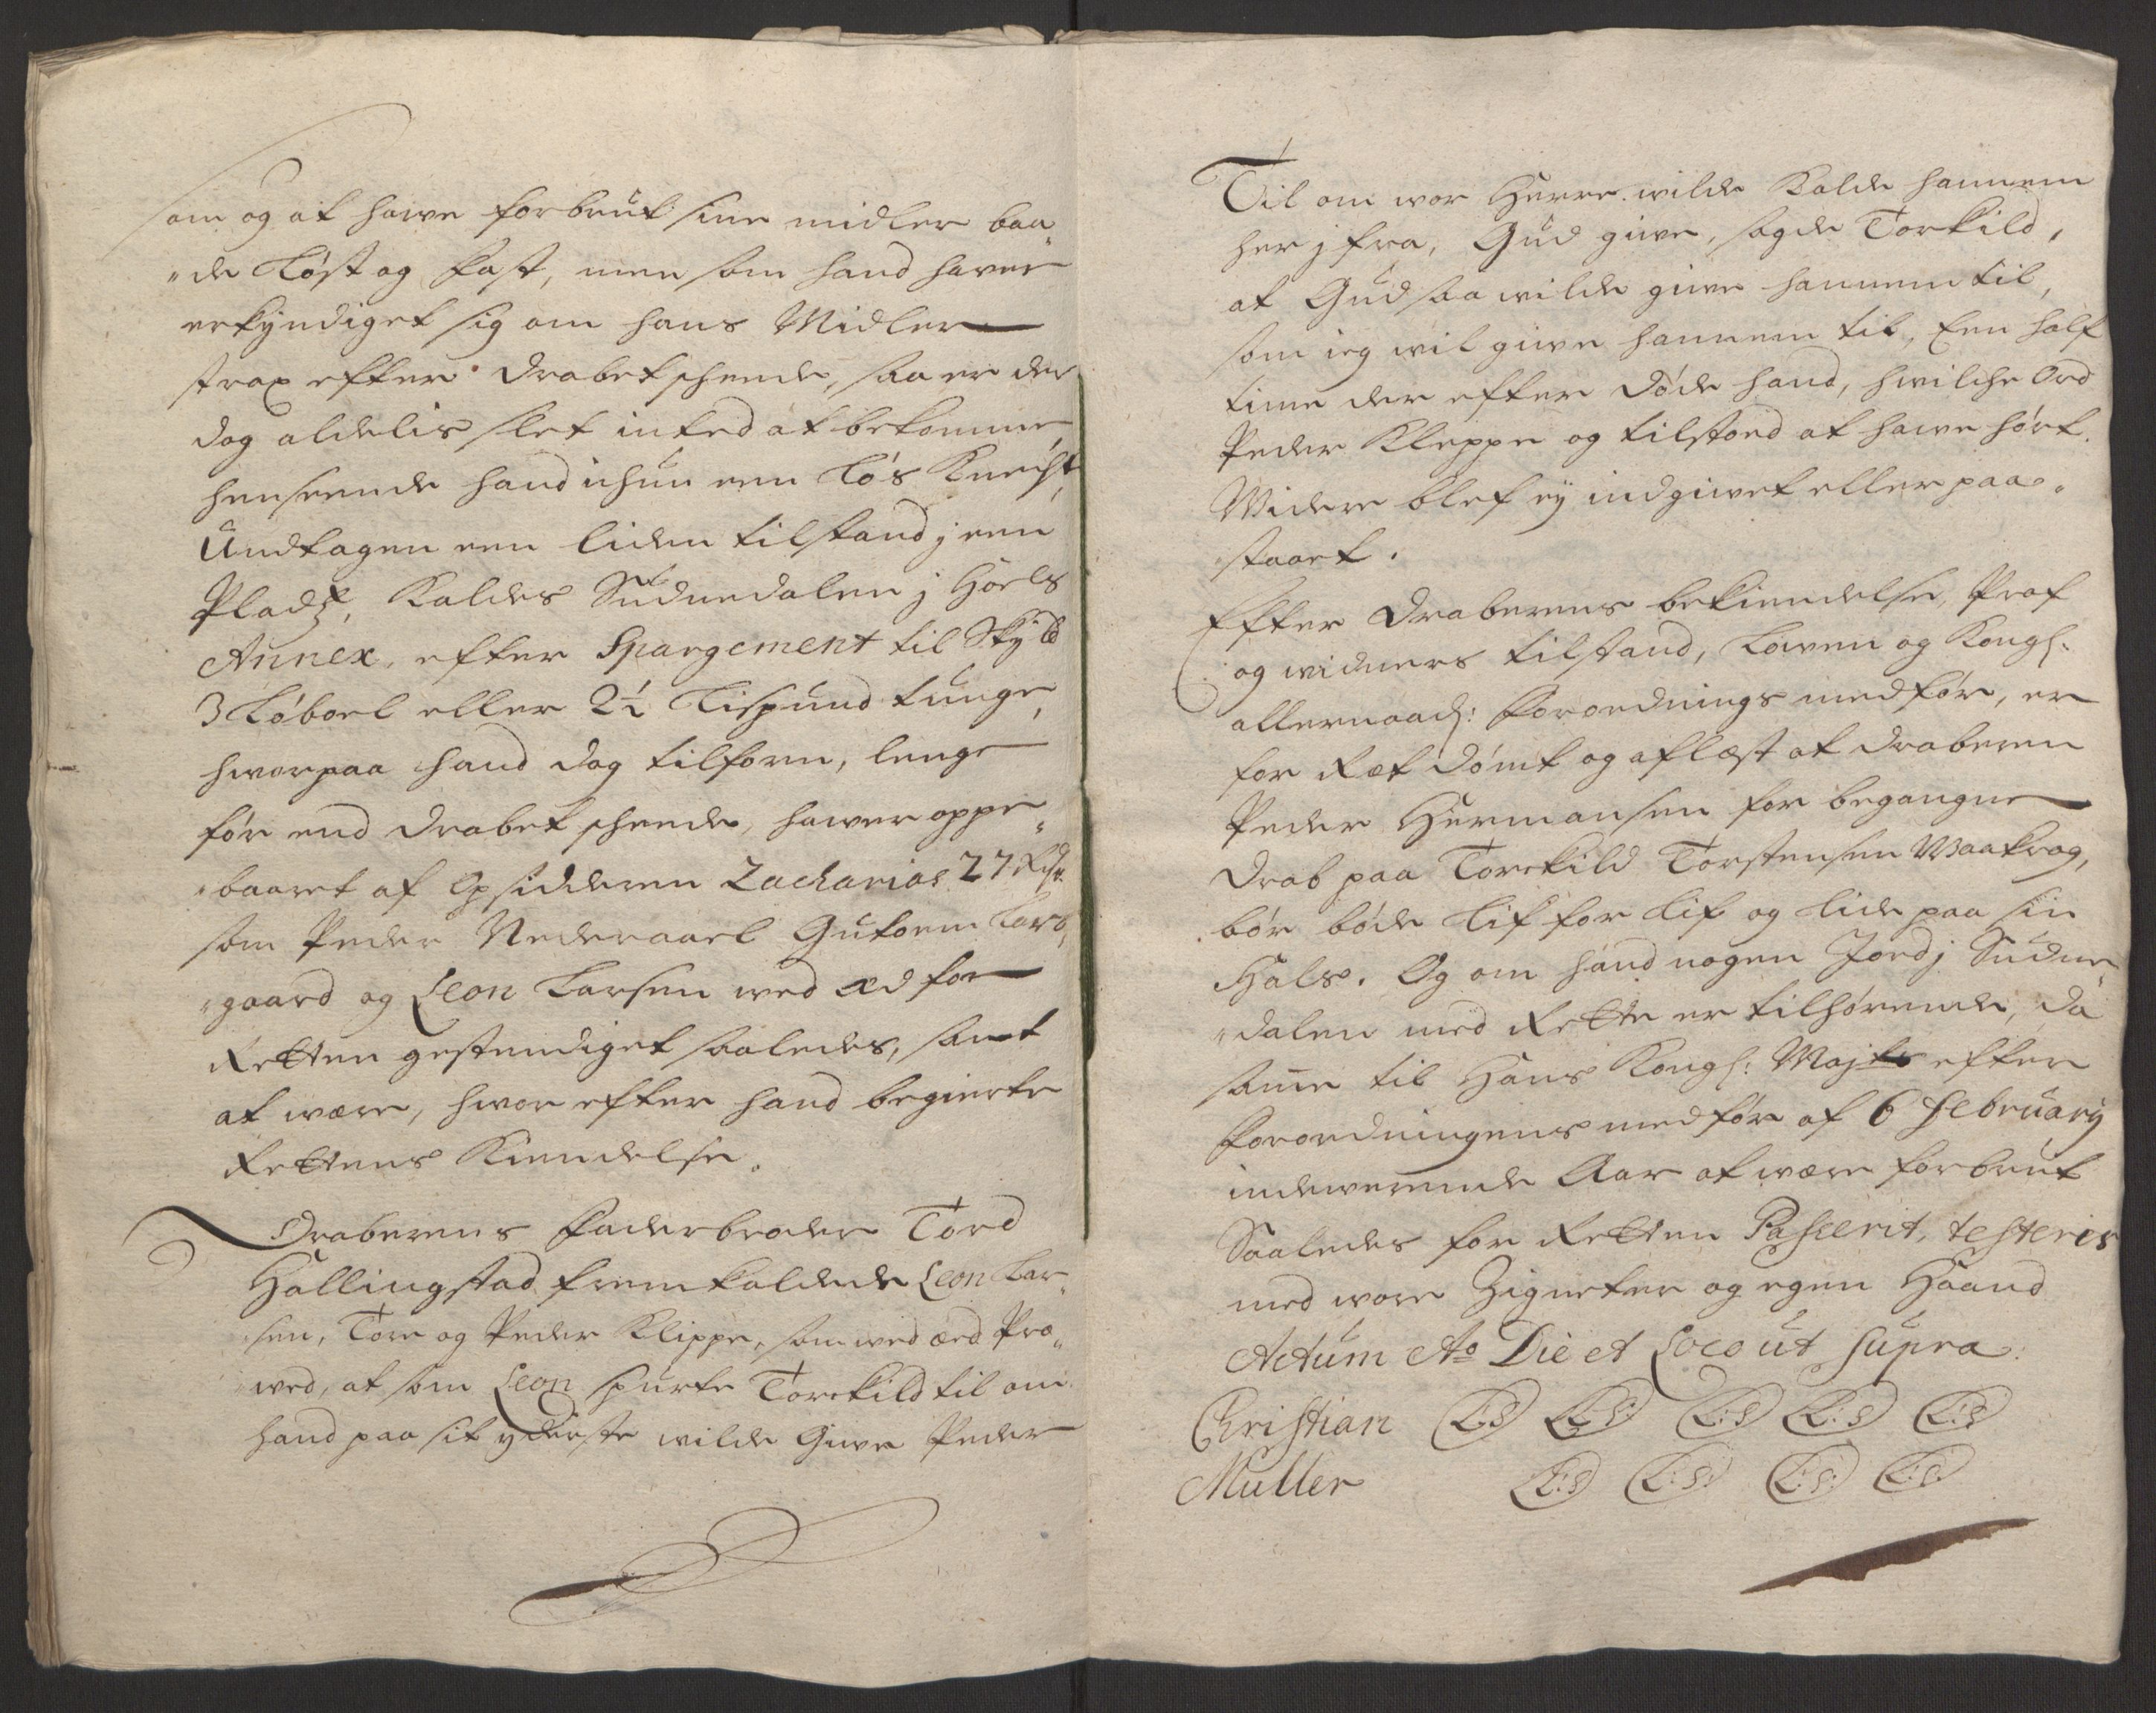 som og at hawe forbrut sine midler baa„
„de Løst og Fast, men som hand haver
erkyndiget sig om hans Midler
strax efter drabet scheede, saa er der
dog aldelis slet inted at bekomme,
henseende hand ichun een Løs Knecht,
Undtagen een liden tilstand j een
Pladtz, kaldes Sudnedalen j Hoels
Annex, efter Spargement til Skyld
3 Løboel eller 2½ Lispund tunge,
hworpaa hand dog tilforn, lenge
før end drabet scheede, hawer oppe„
„baaret af Opsidderen Zacharias 27 Rdr.
som Peder Nederaael Gutorm Tors„
„gaard og Leon Larsen wed æd for
Retten gestendiget saaledes, sant
at wære, hwor efter hand begierte
Rettens Kiendelse.
Draberens Faderbroder Tord
Hallingstad fremkaldede Leon Lar„
„sen, Tore og Peder Klippe, som wed æed Prø„
„wed, at som Leon spurte Torekild til om
hand paa sit yderste wilde Giwe Peder
Til om wor Herre wilde kalde hannem
her j fra, Gud giwe, sagde Torkild,
at Gud saa wilde giwe hannem til,
som ieg wil giwe hannem til, Een half
time der efter døde hand, hwilche Ord
Peder Kleppe og tilstoed at hawe hørt.
Widere blef ej indgiwet eller paa„
staaet.
Efter Draberens bekiendelse, Prof
og widners tilstand, Lowen og Kongl:
allernaad: Forordnings medfør, er
for Ræt dømt og aflæst at draberen
Peder Hermansen for begangne
Drab paa Torekild Torstensen Waakrog,
bør bøde Lif for Lif og lide paa sin
Hals. Og om hand nogen Jord j Sudne„
„dalen med Rette er tilhørende, da
samme til Hans Kongl: Majts efter
Forordningens medfør af 6 February
indewerende Aar at wære forbrut
Saaledes for Retten Passerit, testeris
med wore Zigneter og egen Haand
Actum Ao Die et Loco ut supra:
Christian L:S L:S: L:S L:S L:S
Muller L:S L:S: L:S: L:S: